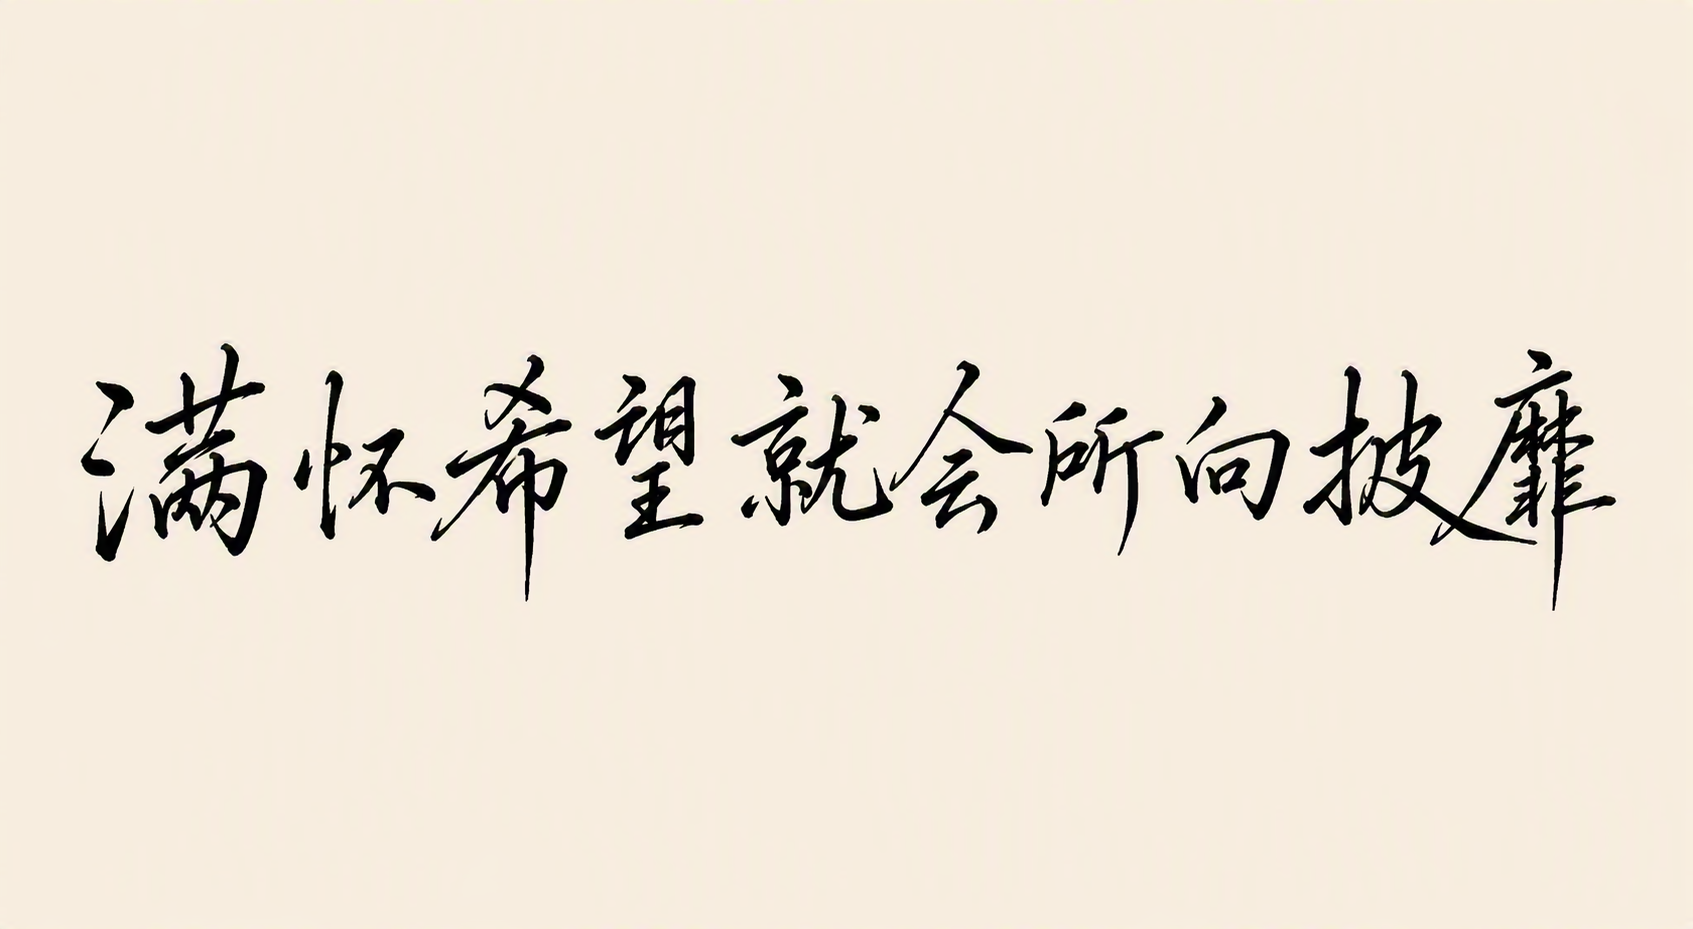 满怀希望就会所向披靡